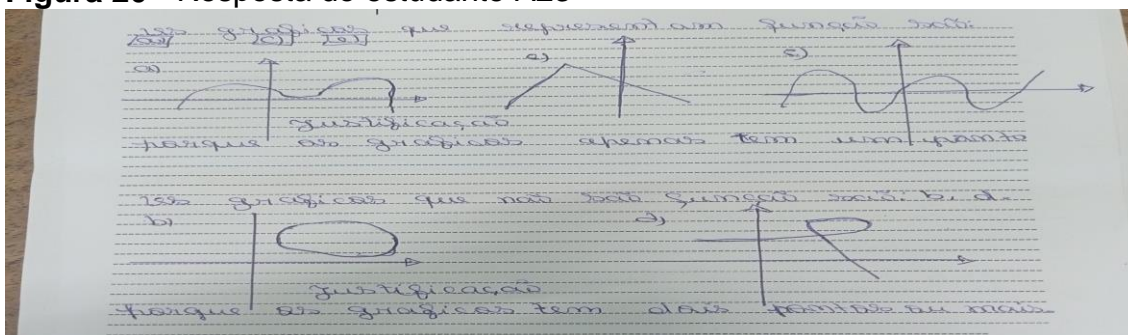 Os gráficos que representam função são:
a) c) e)
a) e) c)
Justificação
porque os gráficos apenas tem um ponto
Os gráficos que não são função são: b, d.
b) d)
Justificação
porque os gráficos tem dois pontos ou mais.